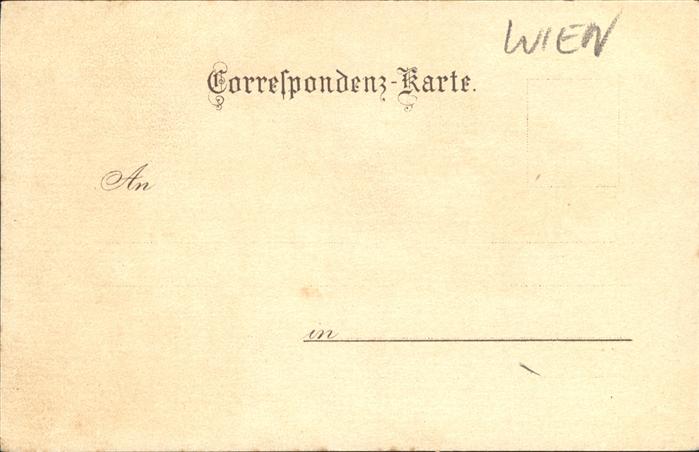 WIEN
Correſpondenz-Karte.
An
in